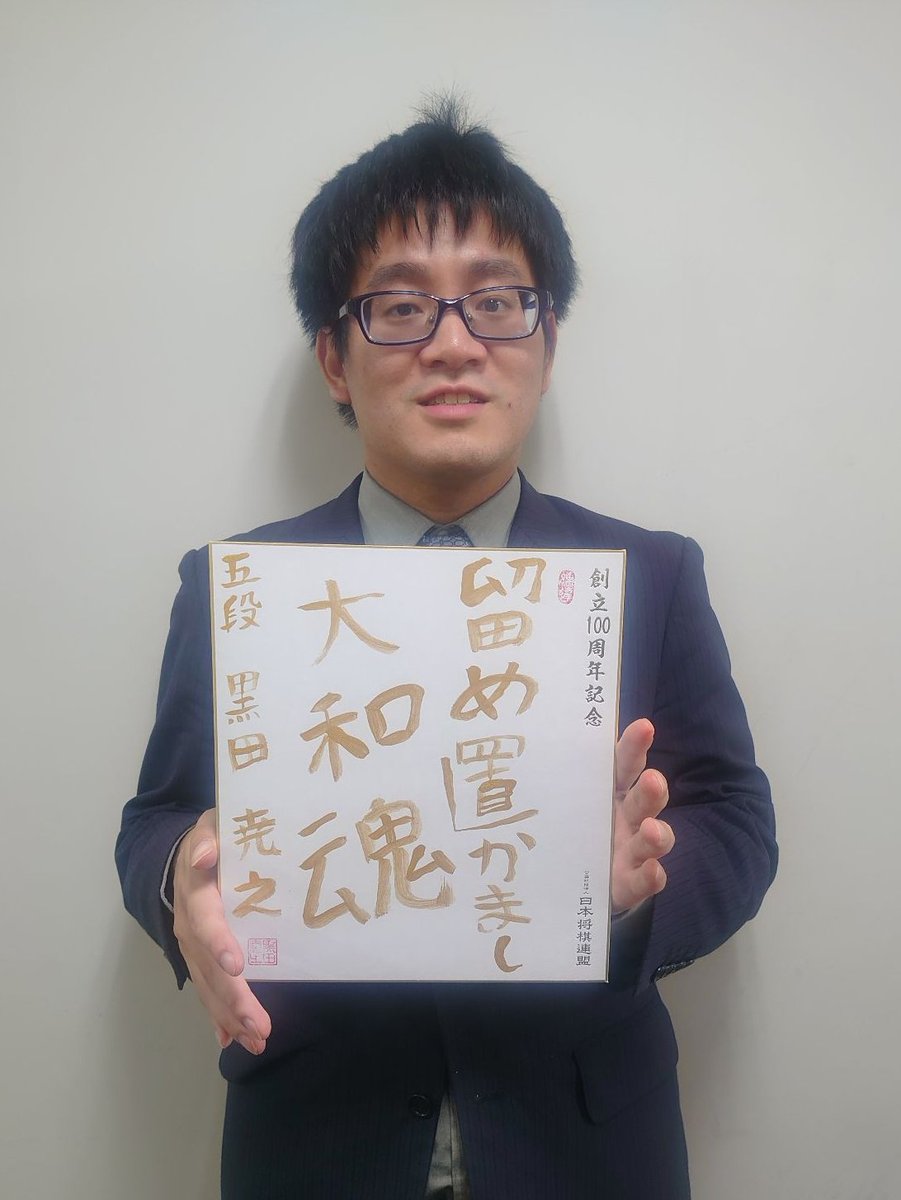 創立100周年記念
公益社団法人 日本将棋連盟
留め置かまし
大和魂
五段 黒田 尭之